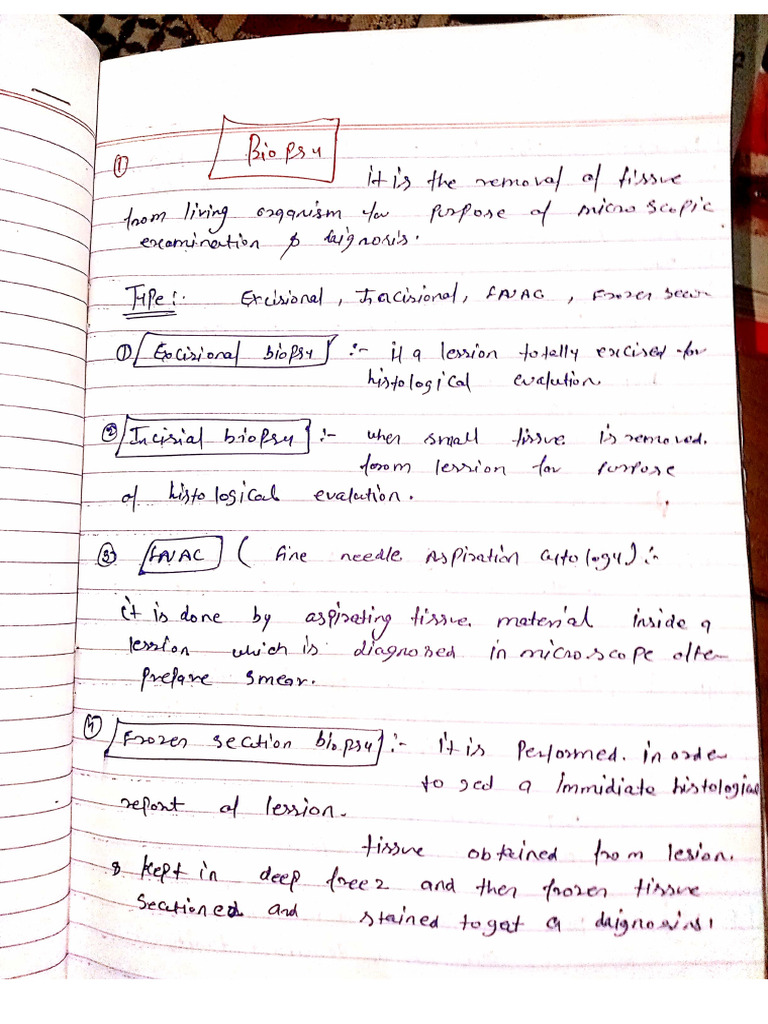 ① Biopsy
it is the removal of tissue
from living organism for purpose of microscopic
excamination & daignosis.
Type :- Excisional, Incisional, FNAC, Frozen Secn
① Excisional biopsy :- if a lession totally excised for
histological evalution.
② Incisial biopsy :- when small tissue is removed.
from lession for purpose
of histological evalution.
③ FNAC ( fine needle Aspiration cytology) :-
it is done by aspirating tissue material inside a
lession which is diagnosed in microscope after
prepare smear.
④ Frozen section biopsy :- it is performed. in order
to a immidiate histological
report of lession.
tissue obtained from lesion.
& kept in deep freez and then frozen tissue
sectioned and stained to get a daignosis.